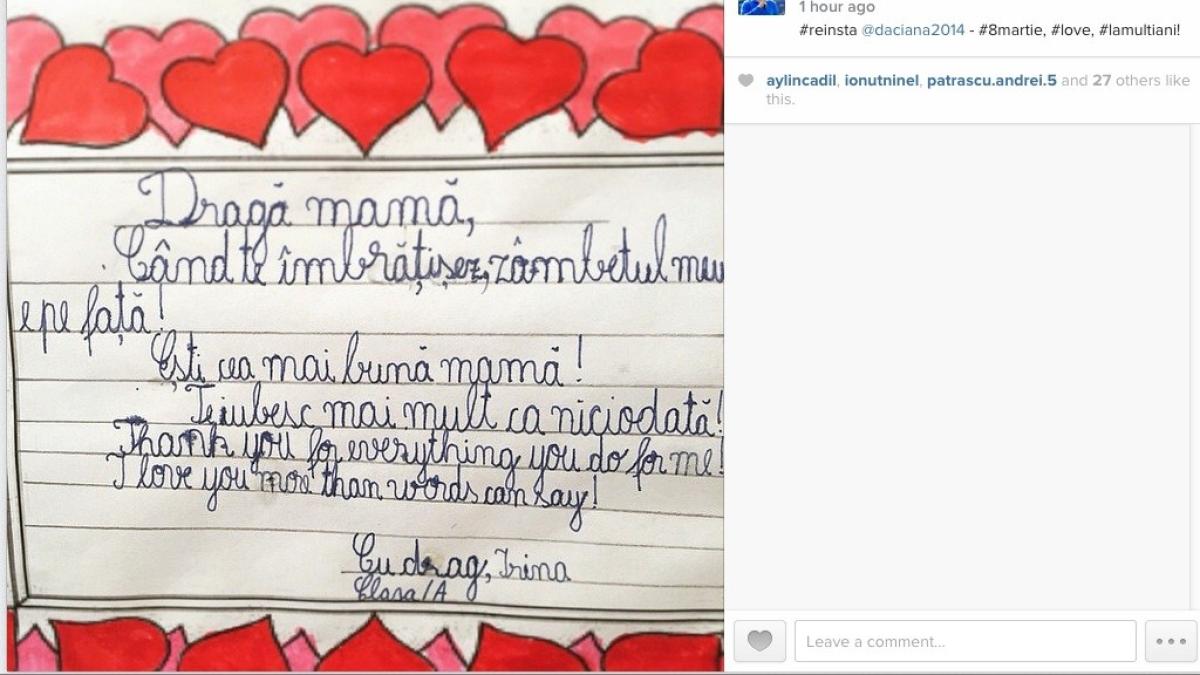 1 hour ago
#reinsta @daciana2014 - #8martie, #love, #lamultiani!
aylincadil, ionutninel, patrascu.andrei.5 and 27 others like
this.
Dragă mamă,
Când te îmbrățișez, zâmbetul meu
e pe față!
Ești cea mai bună mamă!
Te iubesc mai mult ca niciodată!
Thank you for everything you do for me!
I love you more than words can say!
Cu drag, Irina
Clasa I A
Leave a comment...